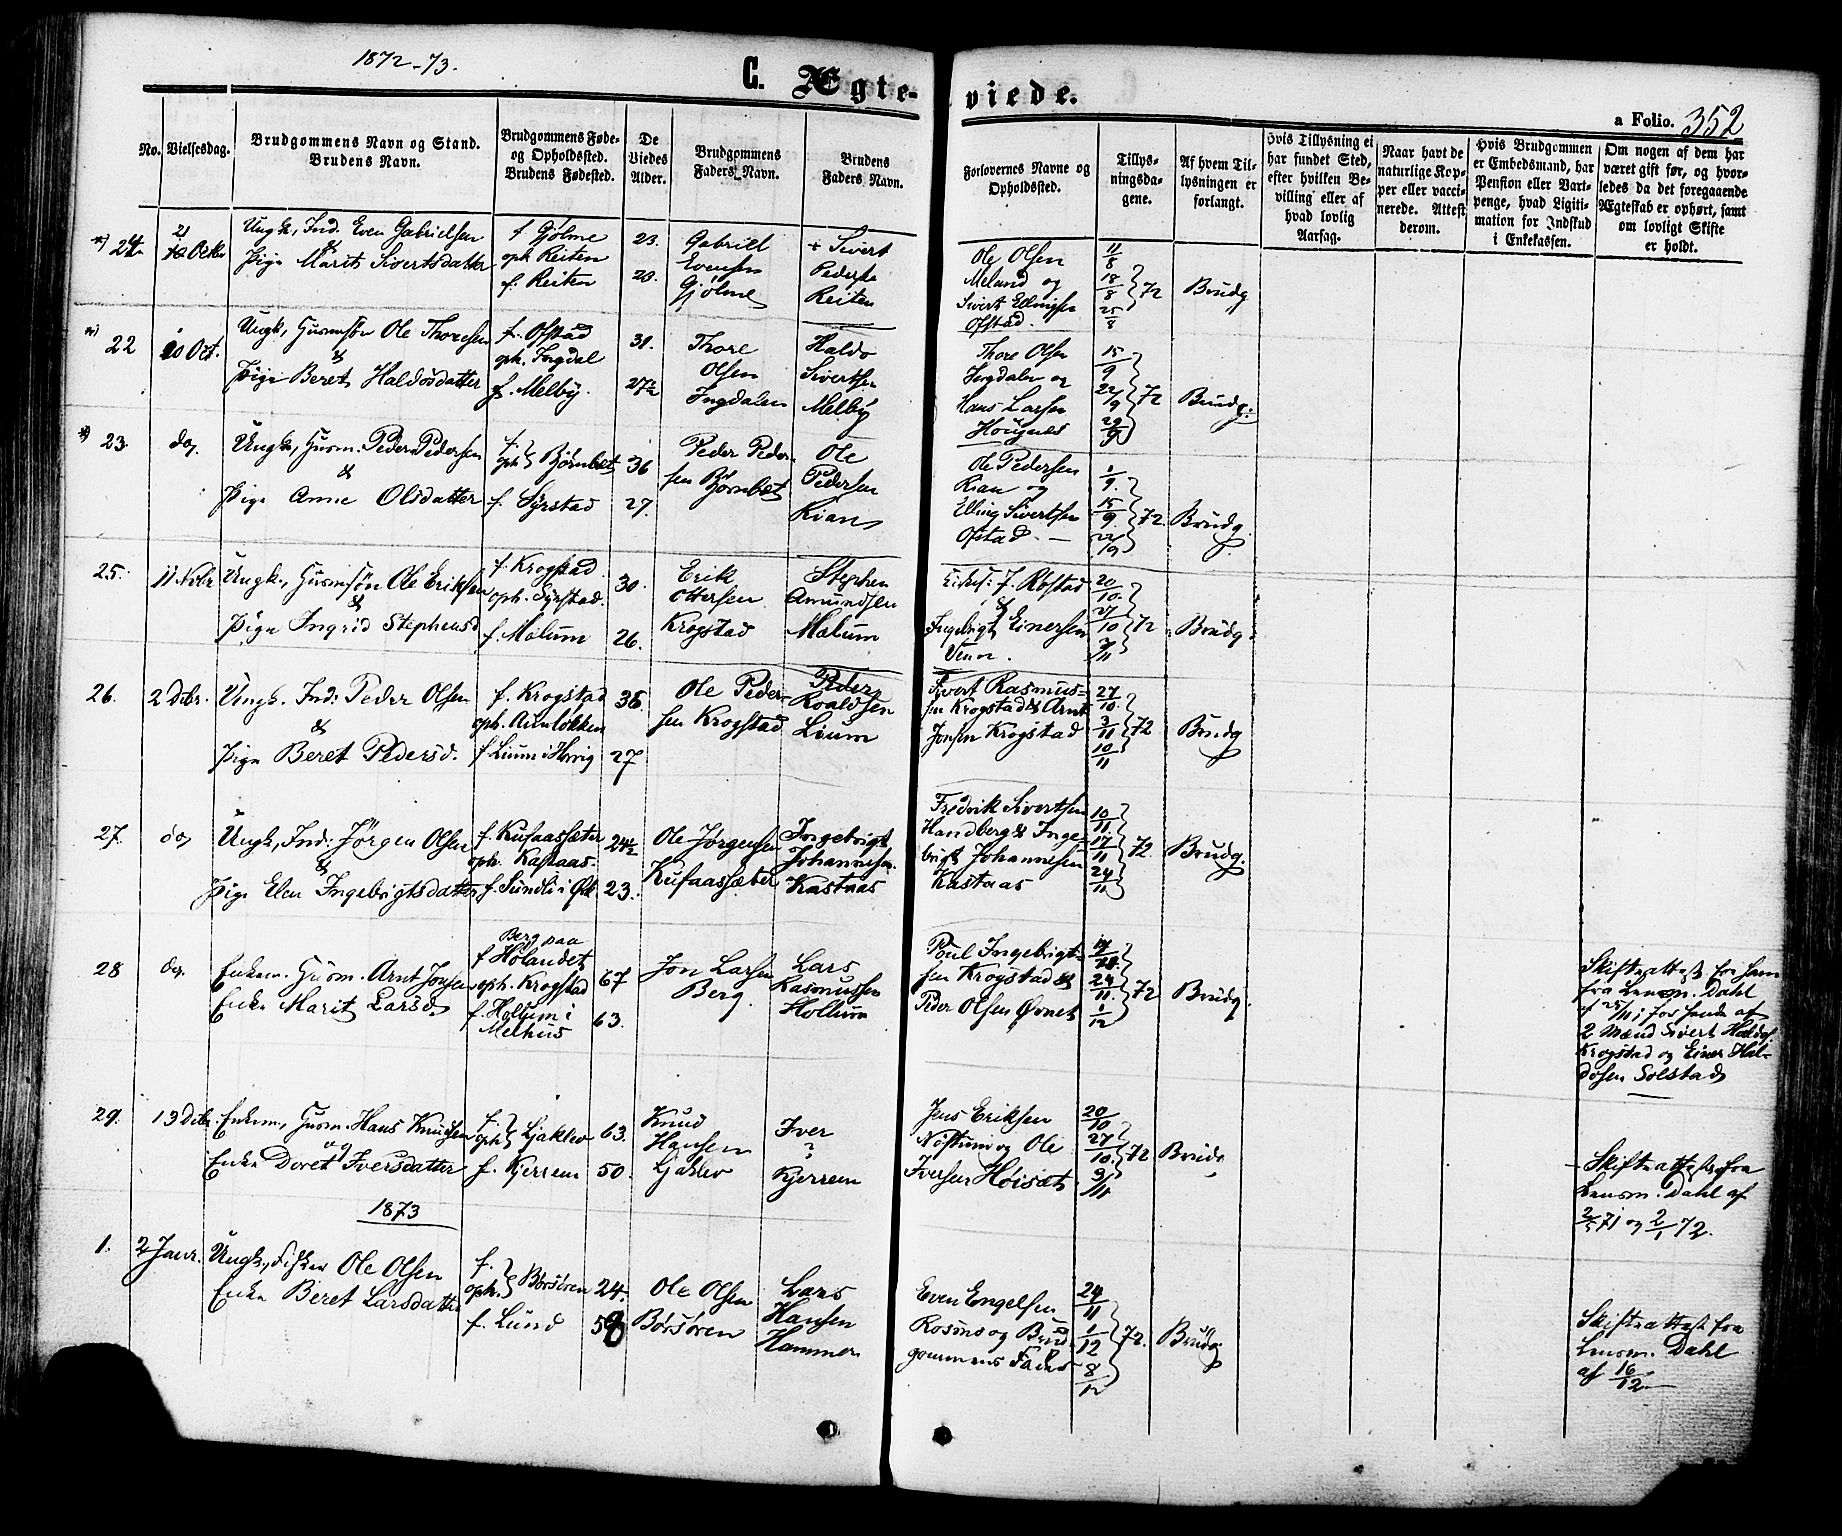 1872-73.
C. Ægte-viede.
a Folio. 352
No.
Vielsesdag.
Brudgommens Navn og Stand.
Brudens Navn.
Brudgommens Føde-
og Opholdssted.
Brudens Fødested.
De
Viedes
Alder.
Brudgommens
Faders Navn.
Brudens
Faders Navn.
Forlovernes Navne og
Opholdssted.
Tillys-
ningsda-
gene.
Af hvem Til-
lysningen er
forlangt.
Hvis Tillysning ei
har fundet Sted,
efter hvilken Be-
villing eller af
hvad lovlig
Aarsag.
Naar havt de
naturlige Kop-
per eller vacci-
nerede. Attest
derom.
Hvis Brudgommen
er Embedsmand, har
Pension eller Vart-
penge, hvad Ligiti-
mation for Indskud
i Enkekassen.
Om nogen af dem har
været gift før, og hvor-
ledes da det foregaaende
Ægteskab er ophørt, samt
om lovligt Skifte
er holdt.
24
21
Ungk., Ind. Even Gabrielsen
&
Pige Marit Sivertsdatter
f. Gjølme
oph. Reiten
f. Reiten
23.
Gabriel
Evensen
Gjølme
+ Sivert
Reiten
Ole Olsen
Meland og
Sivert Ellingsen
Ofstad.
11/8
18/8
25/8
72
Brudg
22
10 Oct.
Ungk., Gusmsøn Ole Thoresen
&
Pige Beret Haldosdatter
f. Ofstad
oph. Ingdal
f. Melby.
31.
27½
Thore
Olsen
Ingdalen
Haldo
Sivertsen
Melby
Thore Olsen
Ingdalen og
Hans Larsen
15/9
22/9
29/9
72
Brudg.
23.
do.
Ungk., Gusm. Peder Pedersen
&
Pige Anne Olsdatter
f.
oph. Bjørnbet
f. Syrstad
36
27.
Peder Peder-
sen Bjørnbet
Ole
Pedersen
Rian
Ole Pedersen
Rian og
Elling Sivertsen
Ofstad. —
1/9.
15/9
22/9
72.
Brudg.
25.
11 Nvbr
Ungk., Gusmsøn Ole Eriksen
&
Pige Ingrid Stephensd
f. Krogstad
oph. Syrstad.
f. Malum
30.
26.
Erik
Ottersen
Krogstad
Stephen
Amundsen
Malum
&
Ingebrigt Einersen
Venn.
20/10
27/10
3/11
72
Brudg
26.
2 Dcbr.
Ungk. Ind: Peder Olsen
&
Pige Beret Pedersd.
f. Krogstad
f. Lium i Hevig
36.
27
Ole Peder-
sen Krogstad
Peder
Roaldsen
Lium
Sivert Rasmus-
sen Krogstad & Arnt
Jonsen Krogstad
27/10
3/11
10/11
72
Brudg
27.
do
Ungk., Ind: Jørgen Olsen
&
Pige Elen Ingebrigtsdatter
f. Kufaassæter
oph. Kastaas-
f. Sundli i Ørk
24½
23.
Ole Jørgensen
Kufaassæter
Ingebrigt
Johannesen
Kastaas
Fredrik Sivertsen
Handberg & Inge-
brigt Johannesen
Kastaas
10/11
17/11
24/11
72.
Brudg.
28
do.
Enkem. Gusm. Arnt Jonsen
Enke Marit Larsd.
Berg paa
f. Hølandet
oph. Krogstad
f. Hollum i
Melhus
67
63.
Jon Larsen
Berg.
Lars
Rasmussen
Hollum
Poul Ingebrigt-
sen Krogstad &
Peder Olsen Øvnet
24/11.
1/12
72
Brudg
Skifteattest for ham
fra Lensm. Dahl
af 25/11; for hende af
2 Mænd Sivert Haldos.
Krogstad og Einer Hal-
dosen Solstad
29.
13 Dcbr
Enkem., Gusm. Hans Knudsen
og
Enke Doret Iversdatter
f.
oph Ljaklev
f. Kjerrem
63.
50.
Knud
Hansen
Ljaklev
Iver
?
Kjerrem
Jens Eriksen
Nøstum og Ole
Iversen Høisæt
20/10
27/10.
3/11
72
Brudg
Skifteattest fra
Lensm. Dahl af
71 og 2/1 72.
1873
1.
2 Janr.
Ungk., Fisker Ole Olsen
Enke Beret Larsdatter
f.
oph. Børsøren
f. Lund
24.
58
Ole Olsen
Børsøren
Lars
Hansen
Hammer
Even Engelsen
Rosms og Brud-
gommens Fader
24/11
1/12
8/12
72.
Brudg
Skifteattest fra
Lensm. Dahl
af 16/12